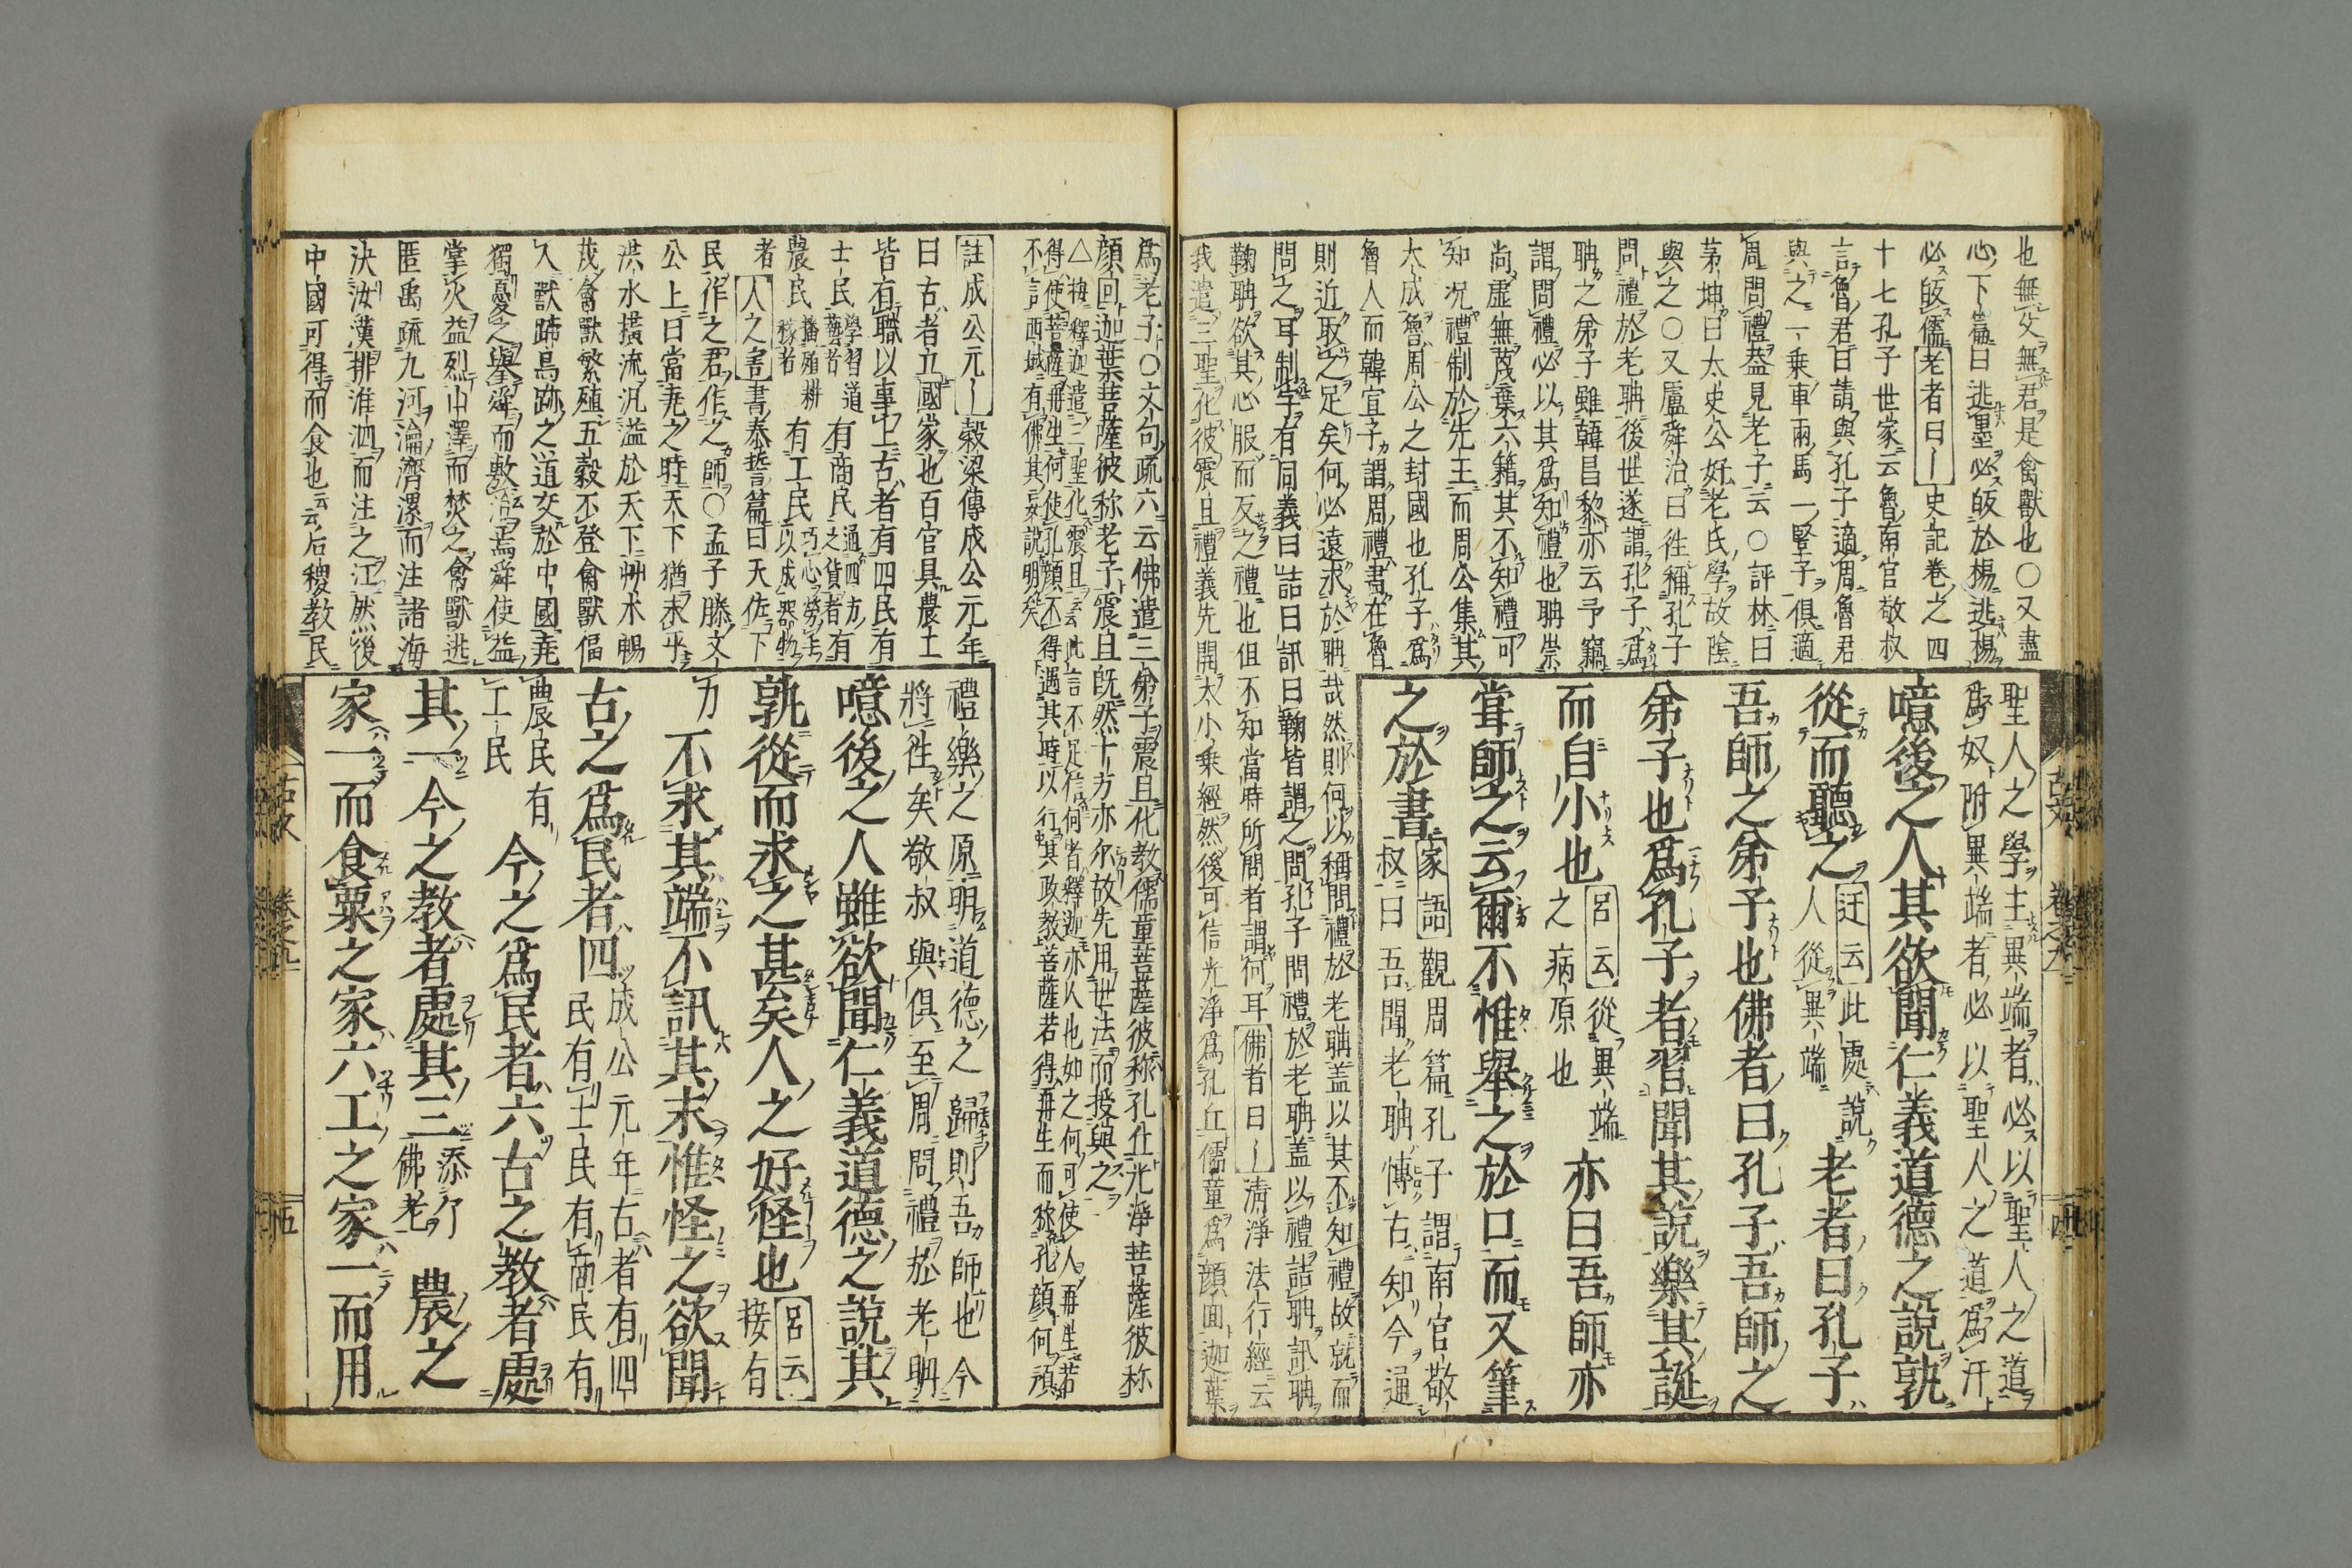 也無父無君是禽獸也〇又盡
心下篇曰逃墨必皈於楊逃楊
必皈儒老者曰史記卷之四
十七孔子世家云魯南宮敬叔
言魯君曰請與孔子適周魯君
與之一乗車兩馬一豎子俱適
周問禮盖見老子云〇評林曰
茅坤曰太史公好老氏學故陰
與之〇又廬舜治曰徃稱孔子
問禮於老聃後世遂謂孔子爲
聃之弟子雖韓昌黎亦云予竊
謂問禮必以其爲知禮也聃崇
尚虚無蔑棄六籍其不知禮可
知况禮制於先王而周公集其
大成魯周公之封國也孔子爲
魯人而韓宣子謂周禮書在魯
則近取之足矣何必遠求於聃哉然則何以稱問禮於老聃盖以其不知禮故就而
問之耳制字有同義曰詰曰訊曰鞠皆謂之問孔子問禮於老聃盖以禮詰聃訊聃
鞠聃欲其心服而反之禮也但不知當時所問者謂何耳佛者曰清淨法行經云
我遣三聖化彼震旦禮義先開大小乗經然後可信光淨爲孔丘儒童爲顔回迦葉
聖人之學主異端者必以聖人之道
爲奴附異端者必以聖人之道爲汙
噫後之人其欲聞仁義道德之説孰
從而聽之迂云此處説
人從異端
老者曰孔子
吾師之弟子也佛者曰孔子吾師之
弟子也爲孔子者習聞其説樂其誕
而自小也呂云從異端
之病原也
亦曰吾師亦
甞師之云爾不惟舉之於口而又筆
之於書家語觀周篇孔子謂南宮敬
叔曰吾聞老聃博古知今通
爲老子〇文句疏六云佛遣三弟子震旦化教儒童菩薩彼称孔丘光淨菩薩彼称
顔回迦葉菩薩彼称老子震旦既然十方亦尓故先用世法而授與之
△按釋迦遣三聖化震旦云云此言不足信何者釋迦亦人也如之何可使人再生若
得使菩薩再生何使孔顔不得遇其時以行其政教菩薩若得再生而称孔顔何須
不言西域有佛其妄説明矣
註成公元穀梁傳成公元年
曰古者立國家也百官具農士
皆有職以事上古者有四民有
士民學習道
藝者
有商民通四方
之貨者
有
農民播殖耕
稼者
有工民巧心勞手
以成器物
者人之害書泰誓篇曰天佐下
民作之君作之師〇孟子滕文
公上曰當堯之時天下猶未平
洪水橫流汎溢於天下艸木暢
茂禽獸繁殖五穀不登禽獸偪
人獸蹄鳥跡之道交於中國堯
獨憂之舉舜而敷治焉舜使益
掌火益烈山澤而焚之禽獸逃
匿禹疏九河瀹濟漯而注諸海
決汝漢排淮泗而注之江然後
中國可得而食也云云后稷教民
禮樂之原明道德之歸則吾師也今
將徃矣敬叔與俱至周問禮於老聃
噫後之人雖欲聞仁義道德之説其
孰從而求之甚矣人之好怪也呂云
接有
力
不求其端不訊其末惟怪之欲聞
古之爲民者四成公元年古者有四
民有士民有商民有
農民有
工民
今之爲民者六古之教者處
其一今之教者處其三添了
佛老
農之
家一而食粟之家六工之家一而用
古文
卷之九
十四
古文
卷之九
十五